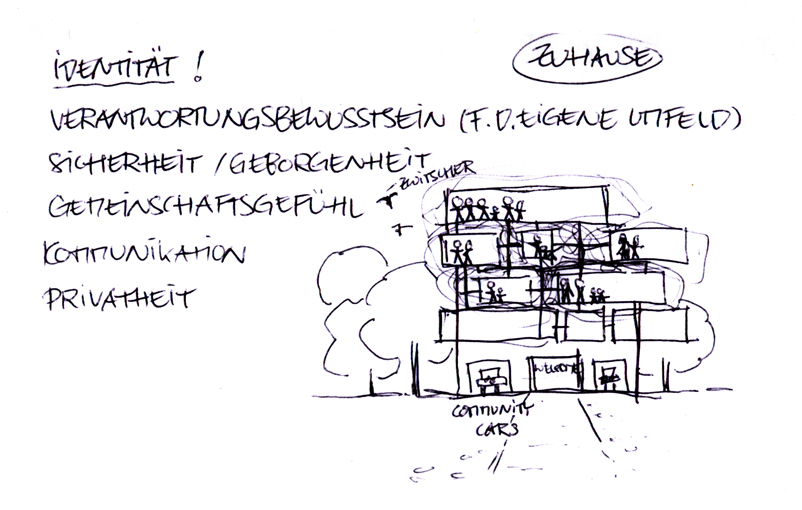 IDENTITÄT !
ZUHAUSE
VERANTWORTUNGSBEWUSSTSEIN (F.D. EIGENE UMFELD)
SICHERHEIT / GEBORGENHEIT
ZWITSCHER
GEMEINSCHAFTSGEFÜHL
KOMMUNIKATION
PRIVATHEIT
WELCOME
COMMUNITY
CARS